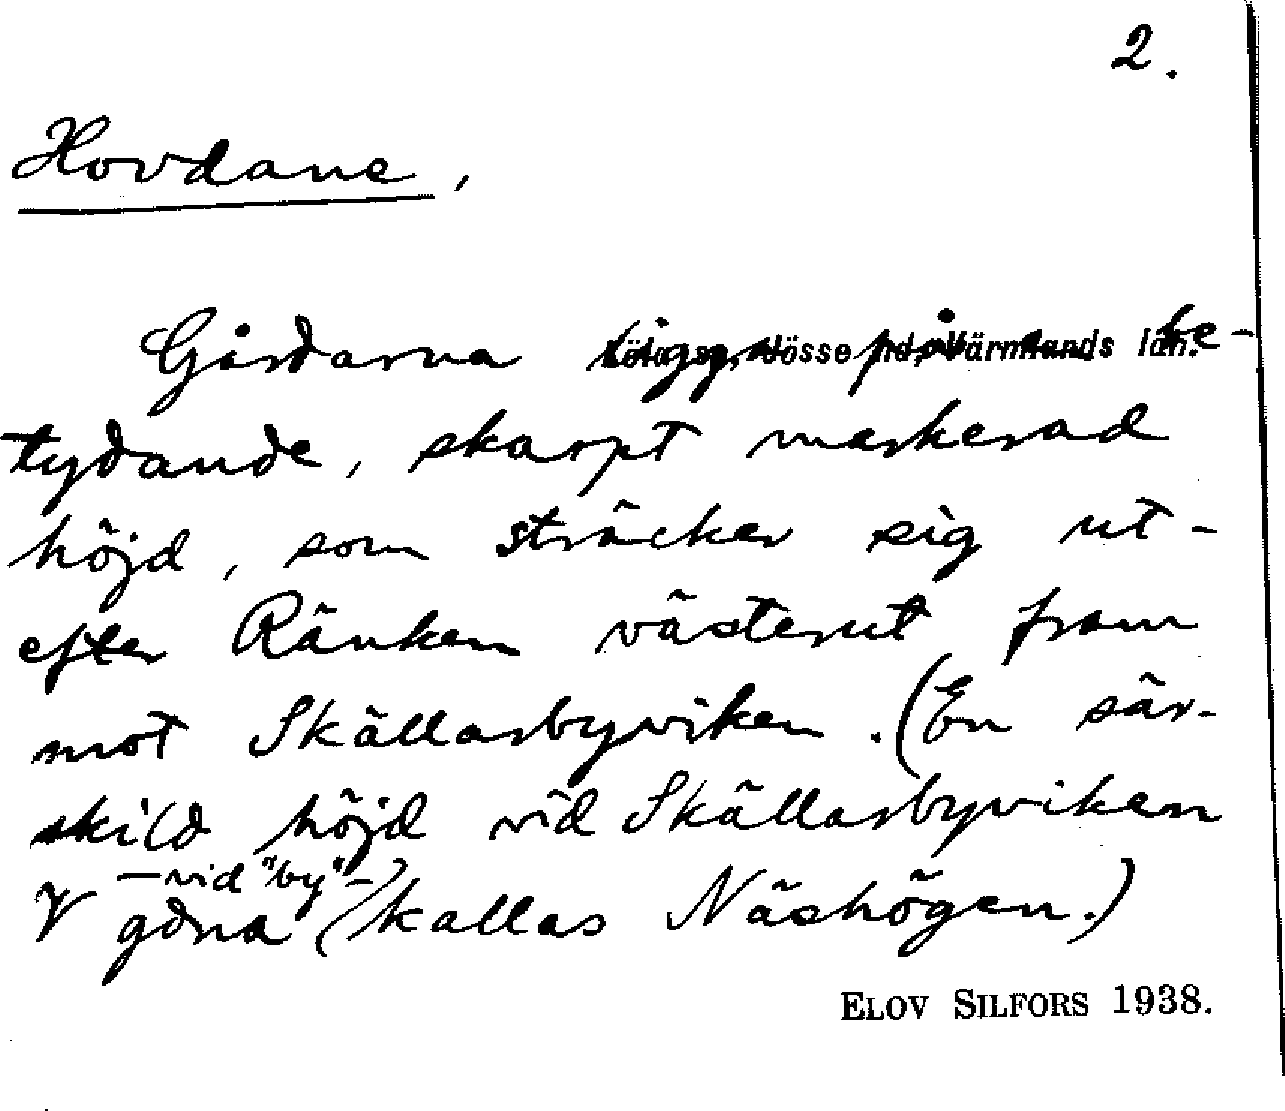 2.
Hovdane,
Gårdarna ligga på en be-
Kölagsg, Jösse hd, Värmlands län.
tydande, skarpt markerad
höjd, som sträcker sig ut-
efter Ränken västerut fram
mot Skällarbyviken. (En sär-
skild höjd vid Skällarbyviken
— vid "by" —
V gdna kallas Näshögen.)
ELOV SILFORS 1938.